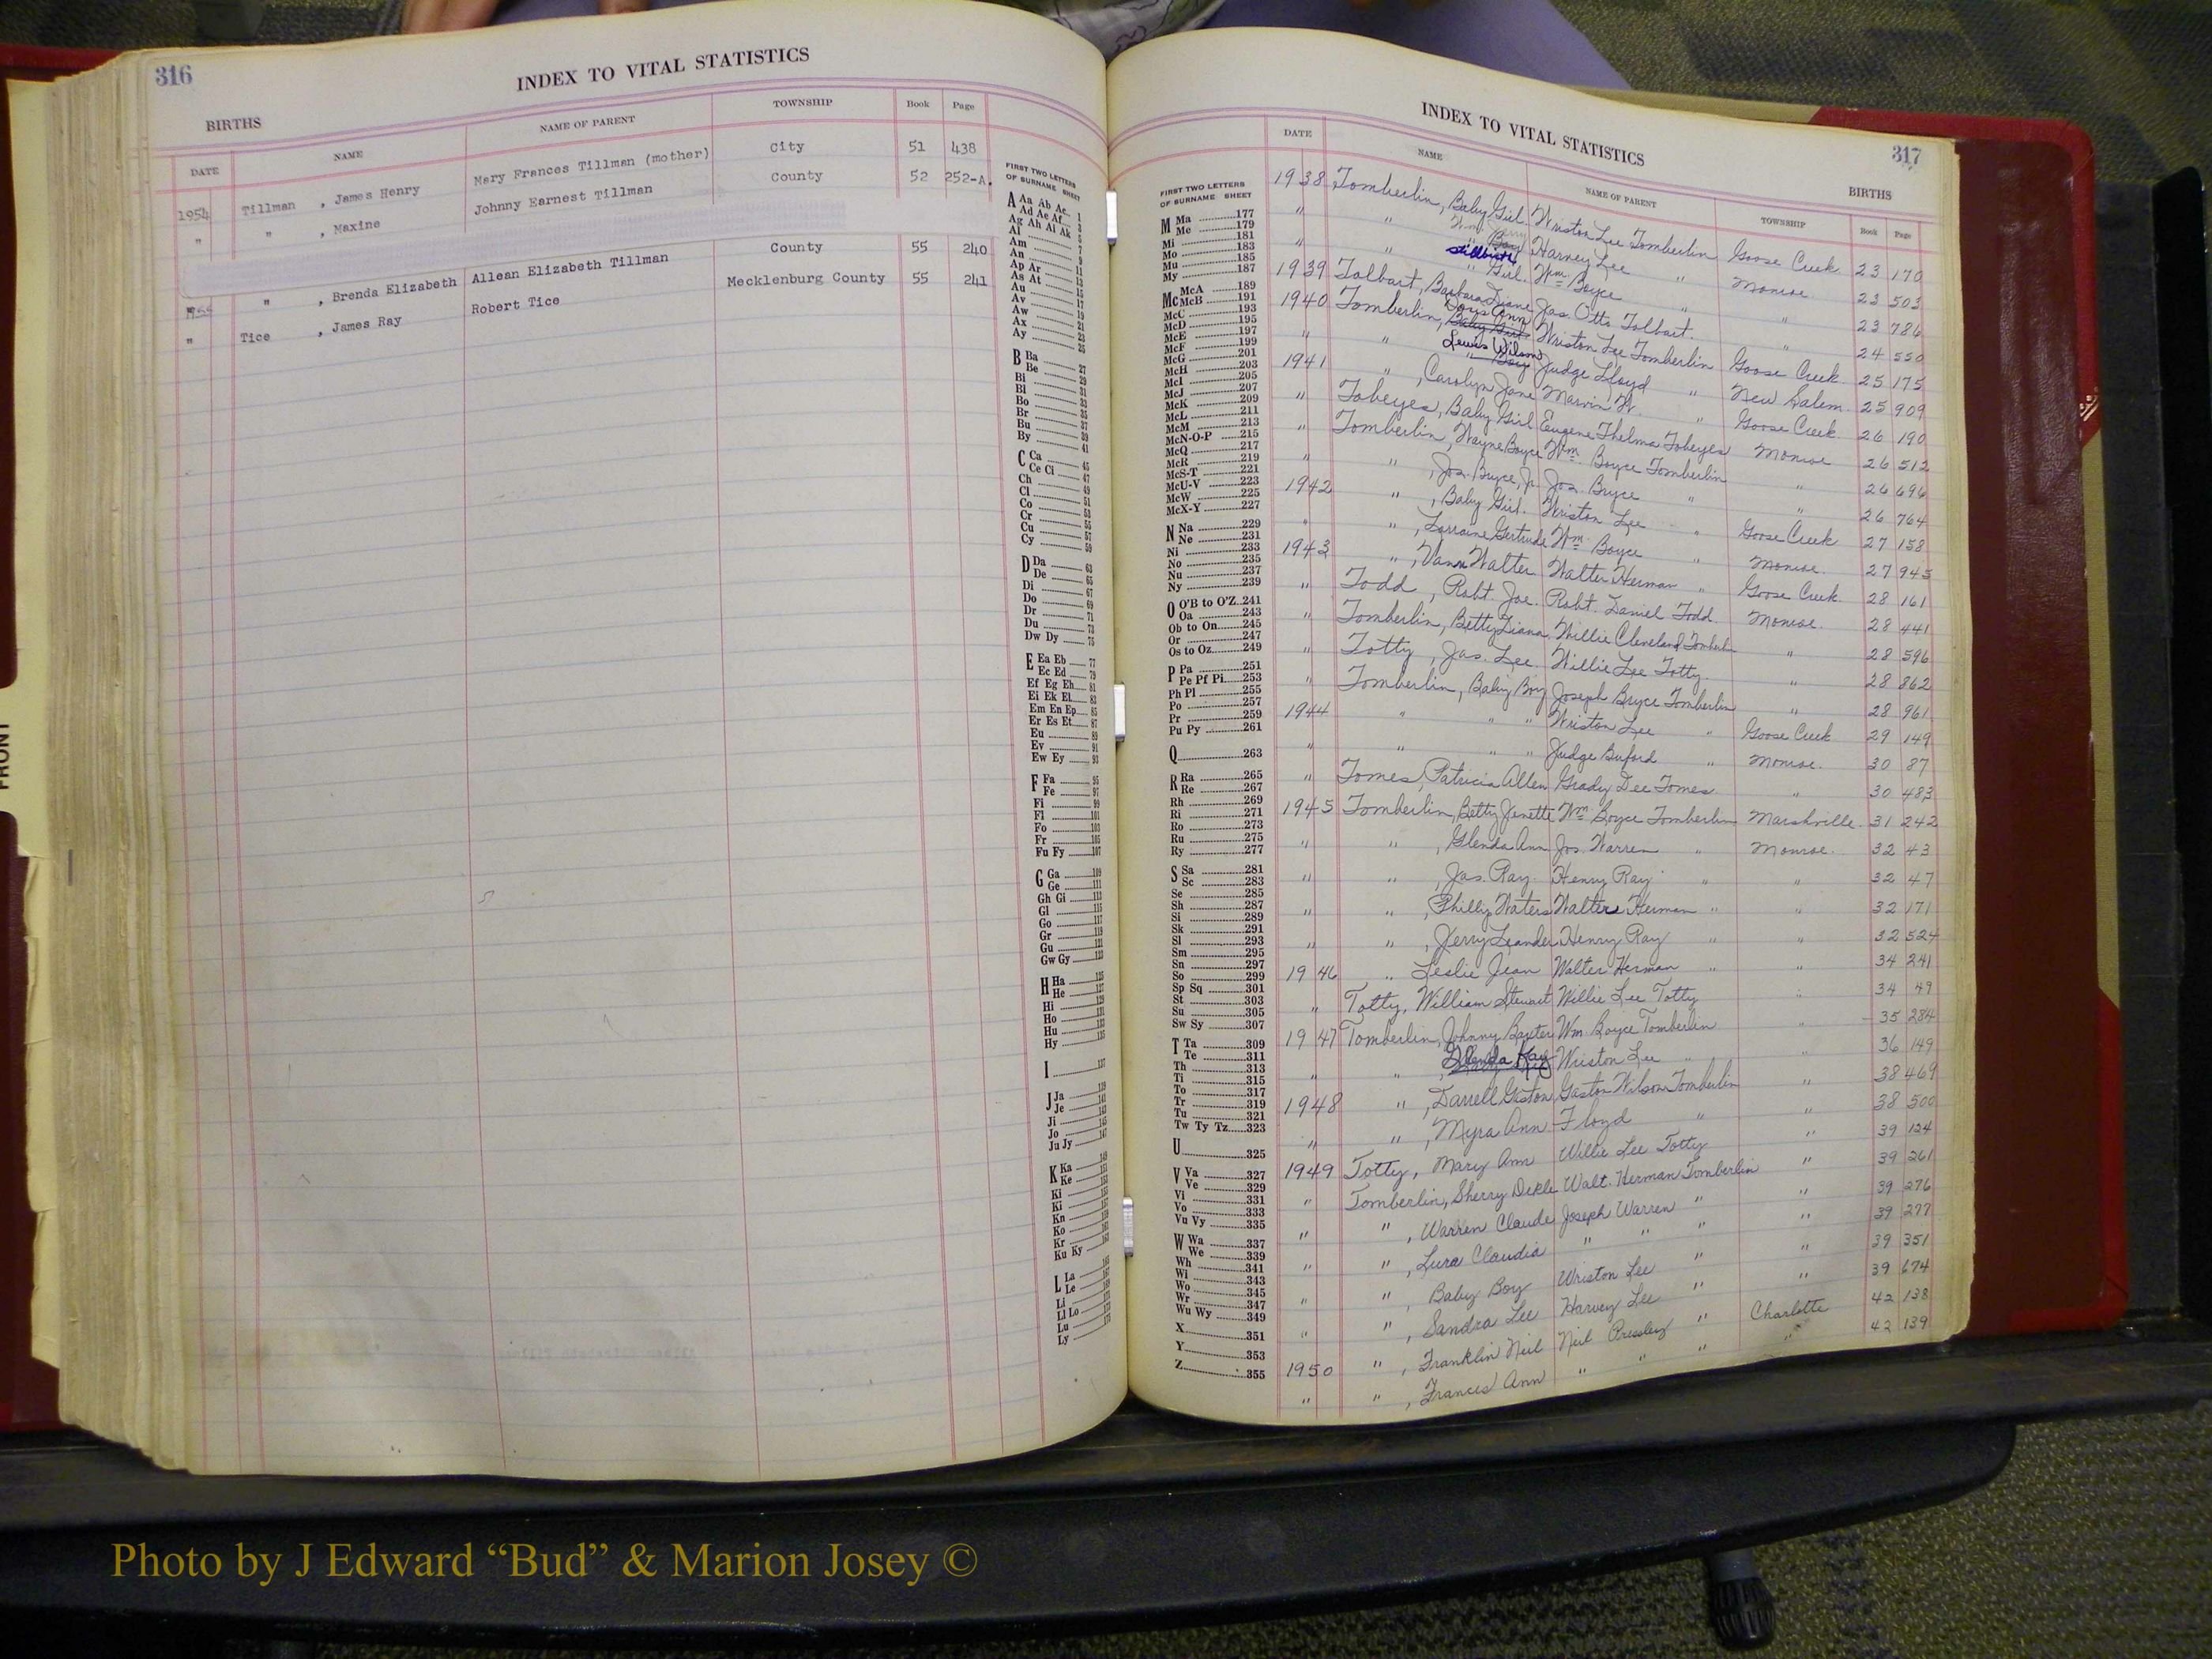 316
INDEX TO VITAL STATISTICS
BIRTHS
DATE NAME NAME OF PARENT TOWNSHIP Book Page
1954 Tillman , James Henry Mary Frances Tillman (mother) City 51 438
" " , Maxine Johnny Earnest Tillman County 52 252-A.
1955 " , Brenda Elizabeth Allean Elizabeth Tillman County 55 240
" Tice , James Ray Robert Tice Mecklenburg County 55 241
FIRST TWO LETTERS
OF SURNAME SHEET
A Aa Ab Ac 1
Ad Ae Af 3
Ag Ah Ai Ak 5
Al
Am 7
An 9
Ap Ar 11
As At 13
Au 15
Av 17
Aw 19
Ax 21
Ay 25
B Ba 27
Be 29
Bi 31
Bl 33
Bo 35
Br 37
Bu 39
By 41
C Ca 45
Ce Ci 47
Ch 49
Cl 51
Co 53
Cr 55
Cu 57
Cy 59
D Da 63
De 65
Di 67
Do 69
Dr 71
Du 73
Dw Dy 75
E Ea Eb 77
Ec Ed 79
Ef Eg Eh 81
Ei Ek El 83
Em En Ep 85
Er Es Et 87
Eu 89
Ev 91
Ew Ey 93
F Fa 95
Fe 97
Fi 99
Fl 101
Fo 103
Fr 105
Fu Fy 107
G Ga 109
Ge 111
Gh Gi 113
Gl 115
Go 117
Gr 119
Gu 121
Gw Gy 123
H Ha 125
He 127
Hi 129
Ho 131
Hu 133
Hy 135
I 137
J Ja 139
Je 141
Ji 143
Jo 145
Ju Jy 147
K Ka 149
Ke 151
Ki
Ki
Kn
Ko
Kr
Ku Ky
L La
Le
Li
Ll Lo
Lu
Ly
317
INDEX TO VITAL STATISTICS
BIRTHS
DATE NAME NAME OF PARENT TOWNSHIP Book Page
FIRST TWO LETTERS
OF SURNAME SHEET
M Ma 177
Me 179
Mi 181
Mo 183
Mu 185
My 187
Mc McA 189
McB 191
McC 193
McD 195
McE 197
McF 199
McG 201
McH 203
McI 205
McJ 207
McK 209
McL 211
McM 213
McN-O-P 215
McQ 217
McR 219
McS-T 221
McU-V 223
McW 225
McX-Y 227
N Na 229
Ne 231
Ni 233
No 235
Nu 237
Ny 239
O O'B to O'Z 241
Oa 243
Ob to On 245
Or 247
Os to Oz 249
P Pa 251
Pe Pf Pi 253
Ph Pl 255
Po 257
Pr 259
Pu Py 261
Q 263
R Ra 265
Re 267
Rh 269
Ri 271
Ro 273
Ru 275
Ry 277
S Sa 281
Sc 283
Se 285
Sh 287
Si 289
Sk 291
Sl 293
Sm 295
Sn 297
So 299
Sp Sq 301
St 303
Su 305
Sw Sy 307
T Ta 309
Te 311
Th 313
Ti 315
To 317
Tr 319
Tu 321
Tw Ty Tz 323
U 325
V Va 327
Ve 329
Vi 331
Vo 333
Vu Vy 335
W Wa 337
We 339
Wh 341
Wi 343
Wo 345
Wr 347
Wu Wy 349
X 351
Y 353
Z 355
1938 Tomberlin, Baby Girl Wriston Lee Tomberlin Goose Creek 23 170
" " " Boy Harvey Lee " Monroe 23 503
" " Stillbirth " Girl Wm Boyce " " 23 786
1939 Tolbart, Barbara Diane Jas. Otto Tolbart. " 24 550
1940 Tomberlin, Doris Ann Baby Girl Wriston Lee Tomberlin Goose Creek 25 175
" " Lewis Wilson " Boy Judge Lloyd " New Salem 25 909
1941 " , Carolyn Jane Marvin W. " Goose Creek 26 190
" Tobeyes, Baby Girl Eugene Thelma Tobeyes Monroe 26 512
" Tomberlin, Wayne Boyce Wm Boyce Tomberlin " 26 696
" " , Jos. Bryce, Jr. Jos. Bryce " " 26 764
1942 " , Baby Girl Wriston Lee " Goose Creek 27 158
" " , Lorraine Gertrude Wm Boyce " Monroe 27 945
1943 " , Vann Walter Walter Herman " Goose Creek 28 161
" Todd , Robt. Joe. Robt. Daniel Todd. Monroe 28 441
" Tomberlin, Betty Diana Willie Cleveland Tomberlin " 28 596
" Totty , Jas. Lee Willie Lee Totty " 28 862
" Tomberlin, Baby Boy Joseph Bryce Tomberlin " 28 961
1944 " " " Wriston Lee " Goose Creek 29 149
" " " " Judge Buford " Monroe. 30 87
" Tomes, Patricia Allen Grady Dee Tomes " 30 483
1945 Tomberlin, Betty Jenette Wm Boyce Tomberlin Marshville 31 242
" " , Glenda Ann Jos. Warren " Monroe. 32 43
" " , Jas. Ray Henry Ray " " 32 47
" " , Philly Waters Walters Herman " " 32 171
" " , Jerry Leander Henry Ray " " 32 524
1946 " Leslie Jean Walter Herman " " 34 241
" Totty, William Stewart Willie Lee Totty " 34 49
1947 Tomberlin, Johnny Baxter Wm. Boyce Tomberlin " 35 284
" " , Glenda Kay Wriston Lee " " 36 149
1948 " , Darrell Gaston Gaston Wilson Tomberlin " 38 469
" " , Myra Ann Floyd " " 38 500
1949 Totty, Mary Ann Willie Lee Totty " 39 124
" Tomberlin, Sherry Dekle Walt. Herman Tomberlin " 39 261
" " , Warren Claude Joseph Warren " " 39 276
" " , Lura Claudia " " " " 39 277
" " , Baby Boy Wriston Lee " " 39 351
" " , Sandra Lee Harvey Lee " " 39 674
1950 " , Franklin Neil Neil Pressley " Charlotte 42 138
" " , Frances Ann " " " " 42 139
FRONT
Photo by J Edward “Bud” & Marion Josey ©